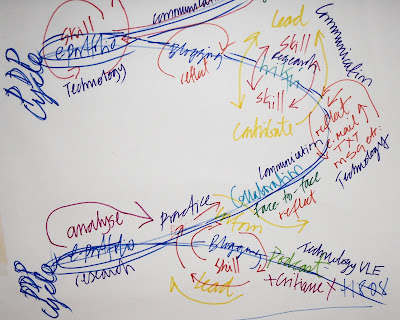 communication
Skill
Lead
eportfolio
PDP
Cycle
Technology
Blogging
reflect
Skill
Research
Skill
Contribute
Communication
reflect
e-mail
TXT
msg etc
Technology
Communication
Collaboration
face-to-face
reflect
analyse
Practice
e-portfolio
research
PDP
Cycle
Blogging
Skill
Lead
Podcast
Technology VLE
+ Critique